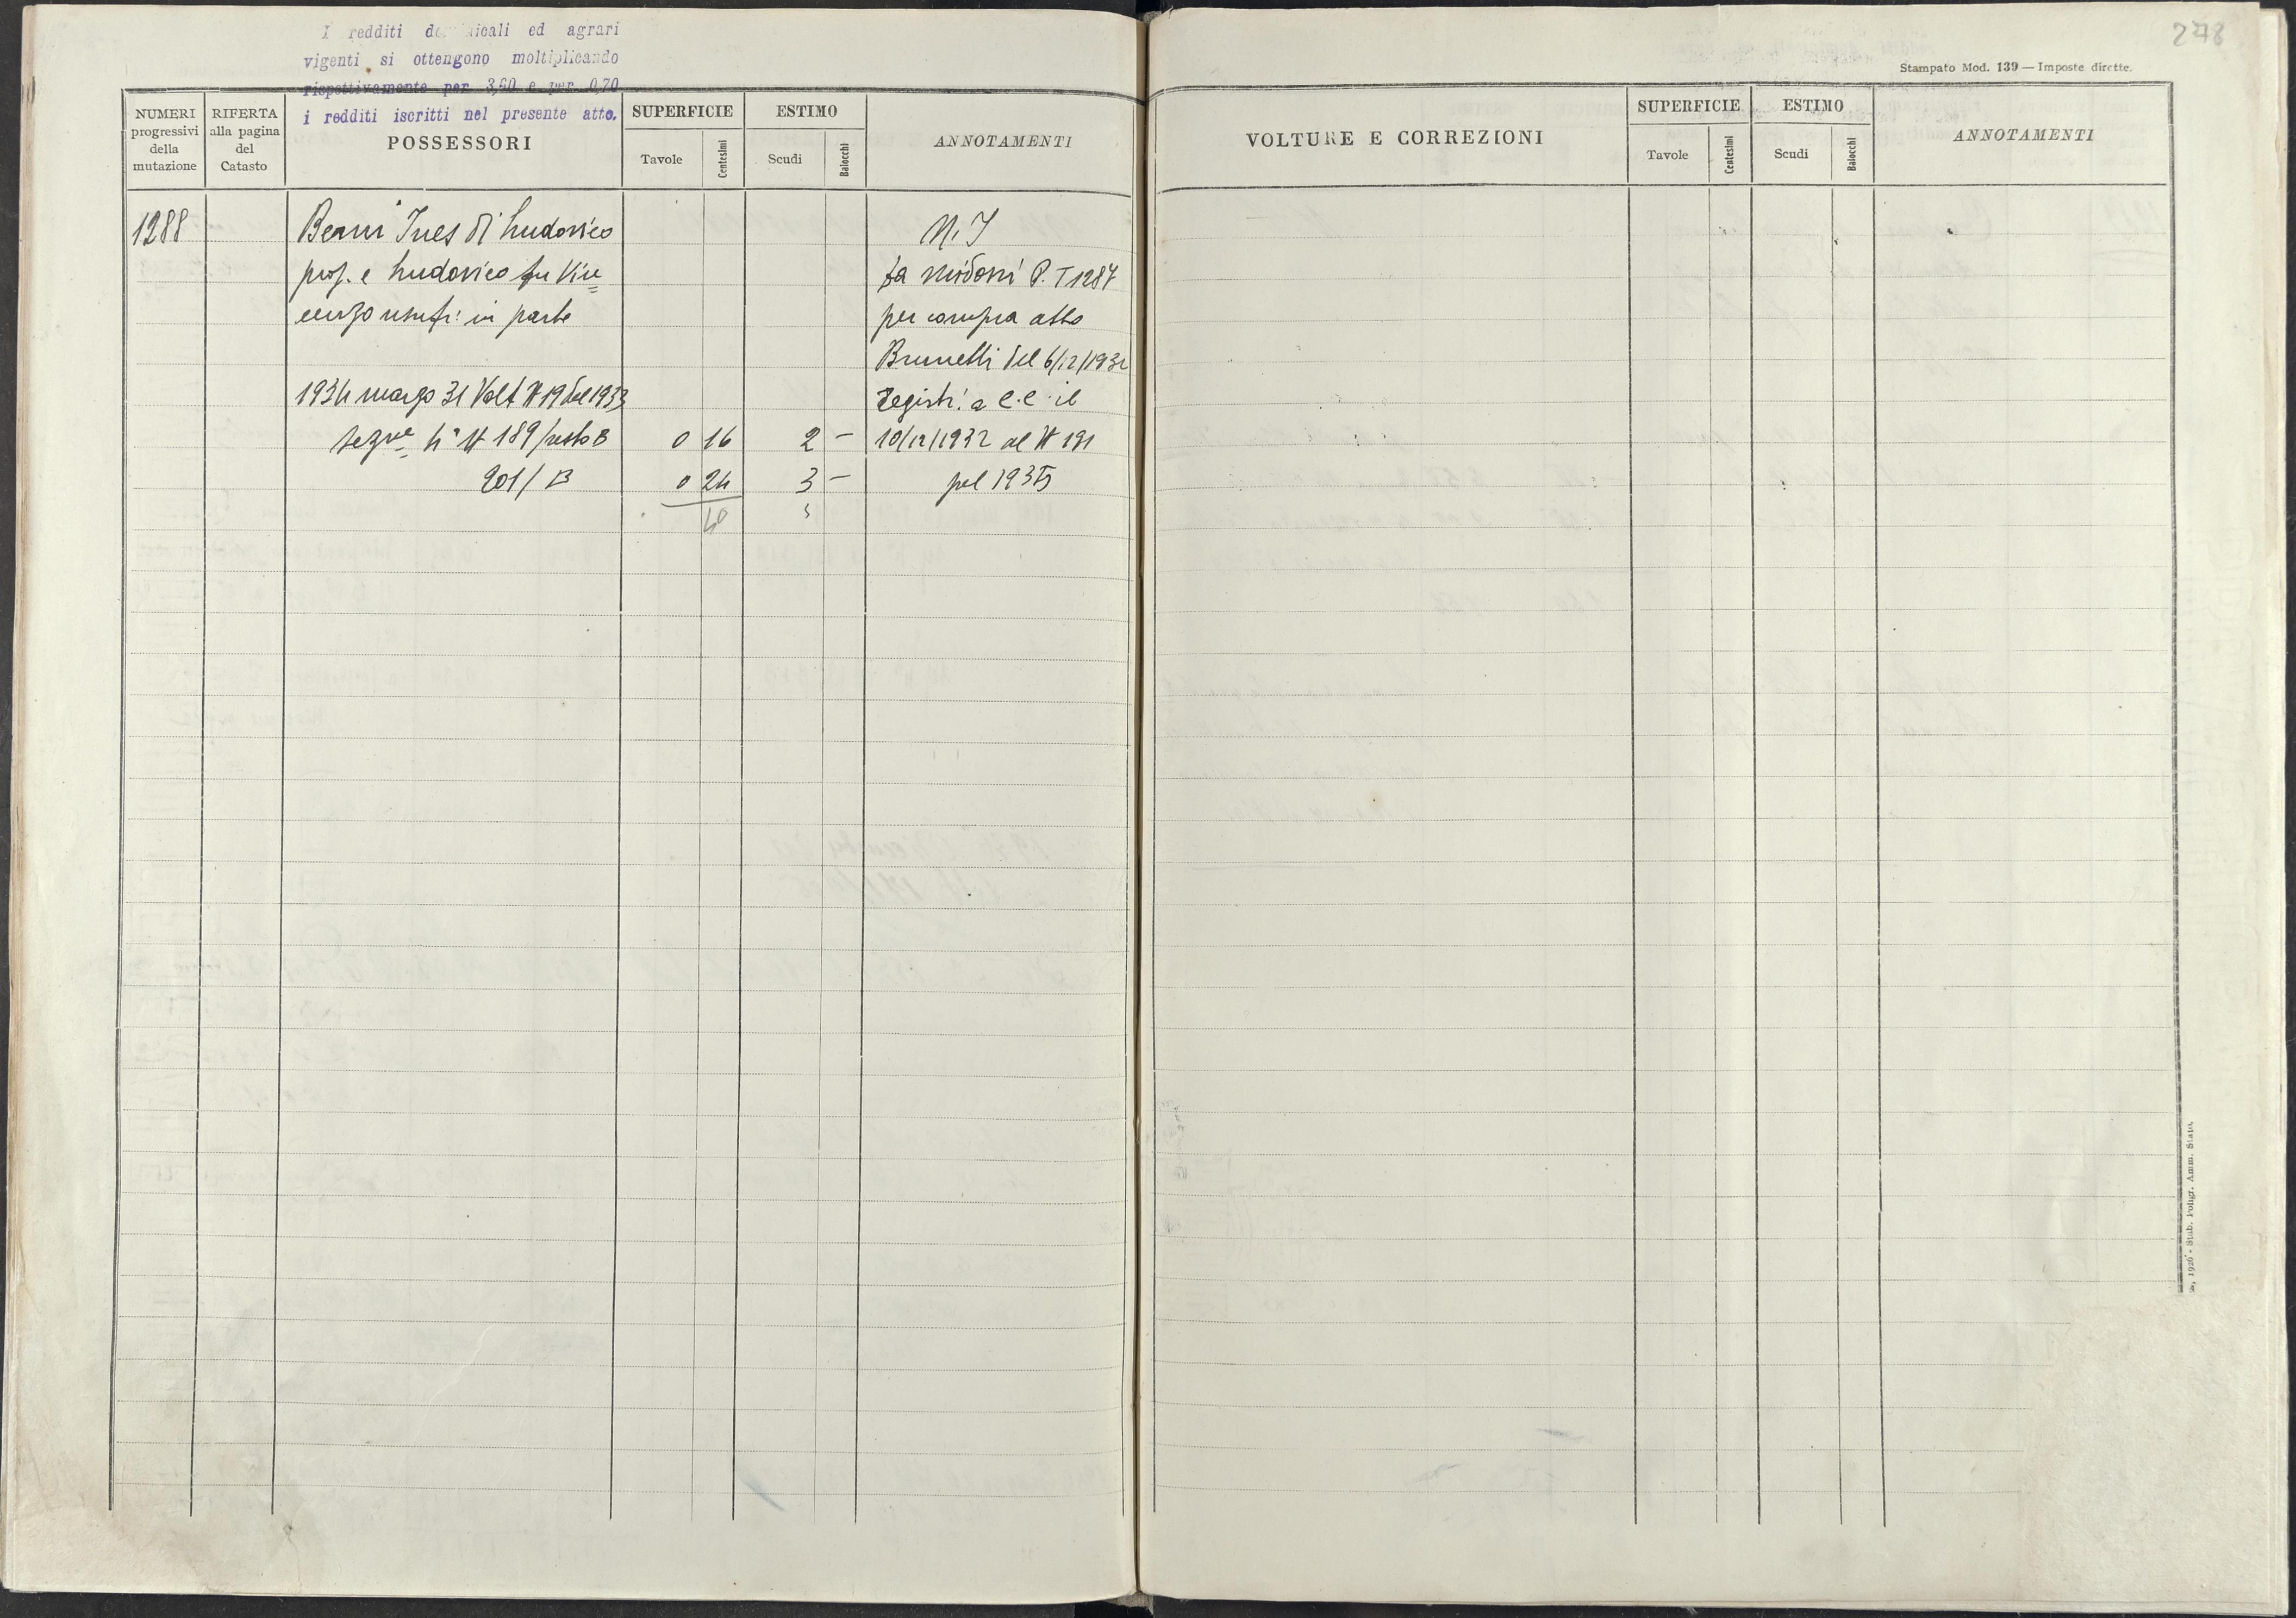 I redditi dominicali ed agrari
vigenti si ottengono moltiplicando
rispettivamente per 3,60 e per 0,70
i redditi iscritti nel presente atto.
NUMERI progressivi della mutazione
RIFERTA alla pagina del Catasto
POSSESSORI
SUPERFICIE
Tavole
Centesimi
ESTIMO
Scudi
Baiocchi
ANNOTAMENTI
1288
Ines di Ludovico
prop. e Ludovico fu Vin=
cenzo usufr: in parte
1934 marzo 31 Volt N 19 del 1933
N 189/resto B 0 16 2 —
201/B 0 24 3 —
40 5
N. I
da P. T 1287
per compra atto
Brunetti del 6/12/1932
registr: a C.C. il
10/12/1932 al N 191
pel 1935
278
Stampato Mod. 139 — Imposte dirette.
VOLTURE E CORREZIONI
SUPERFICIE
Tavole
Centesimi
ESTIMO
Scudi
Baiocchi
ANNOTAMENTI
1926 - Stab. Poligr. Amm. Stato.